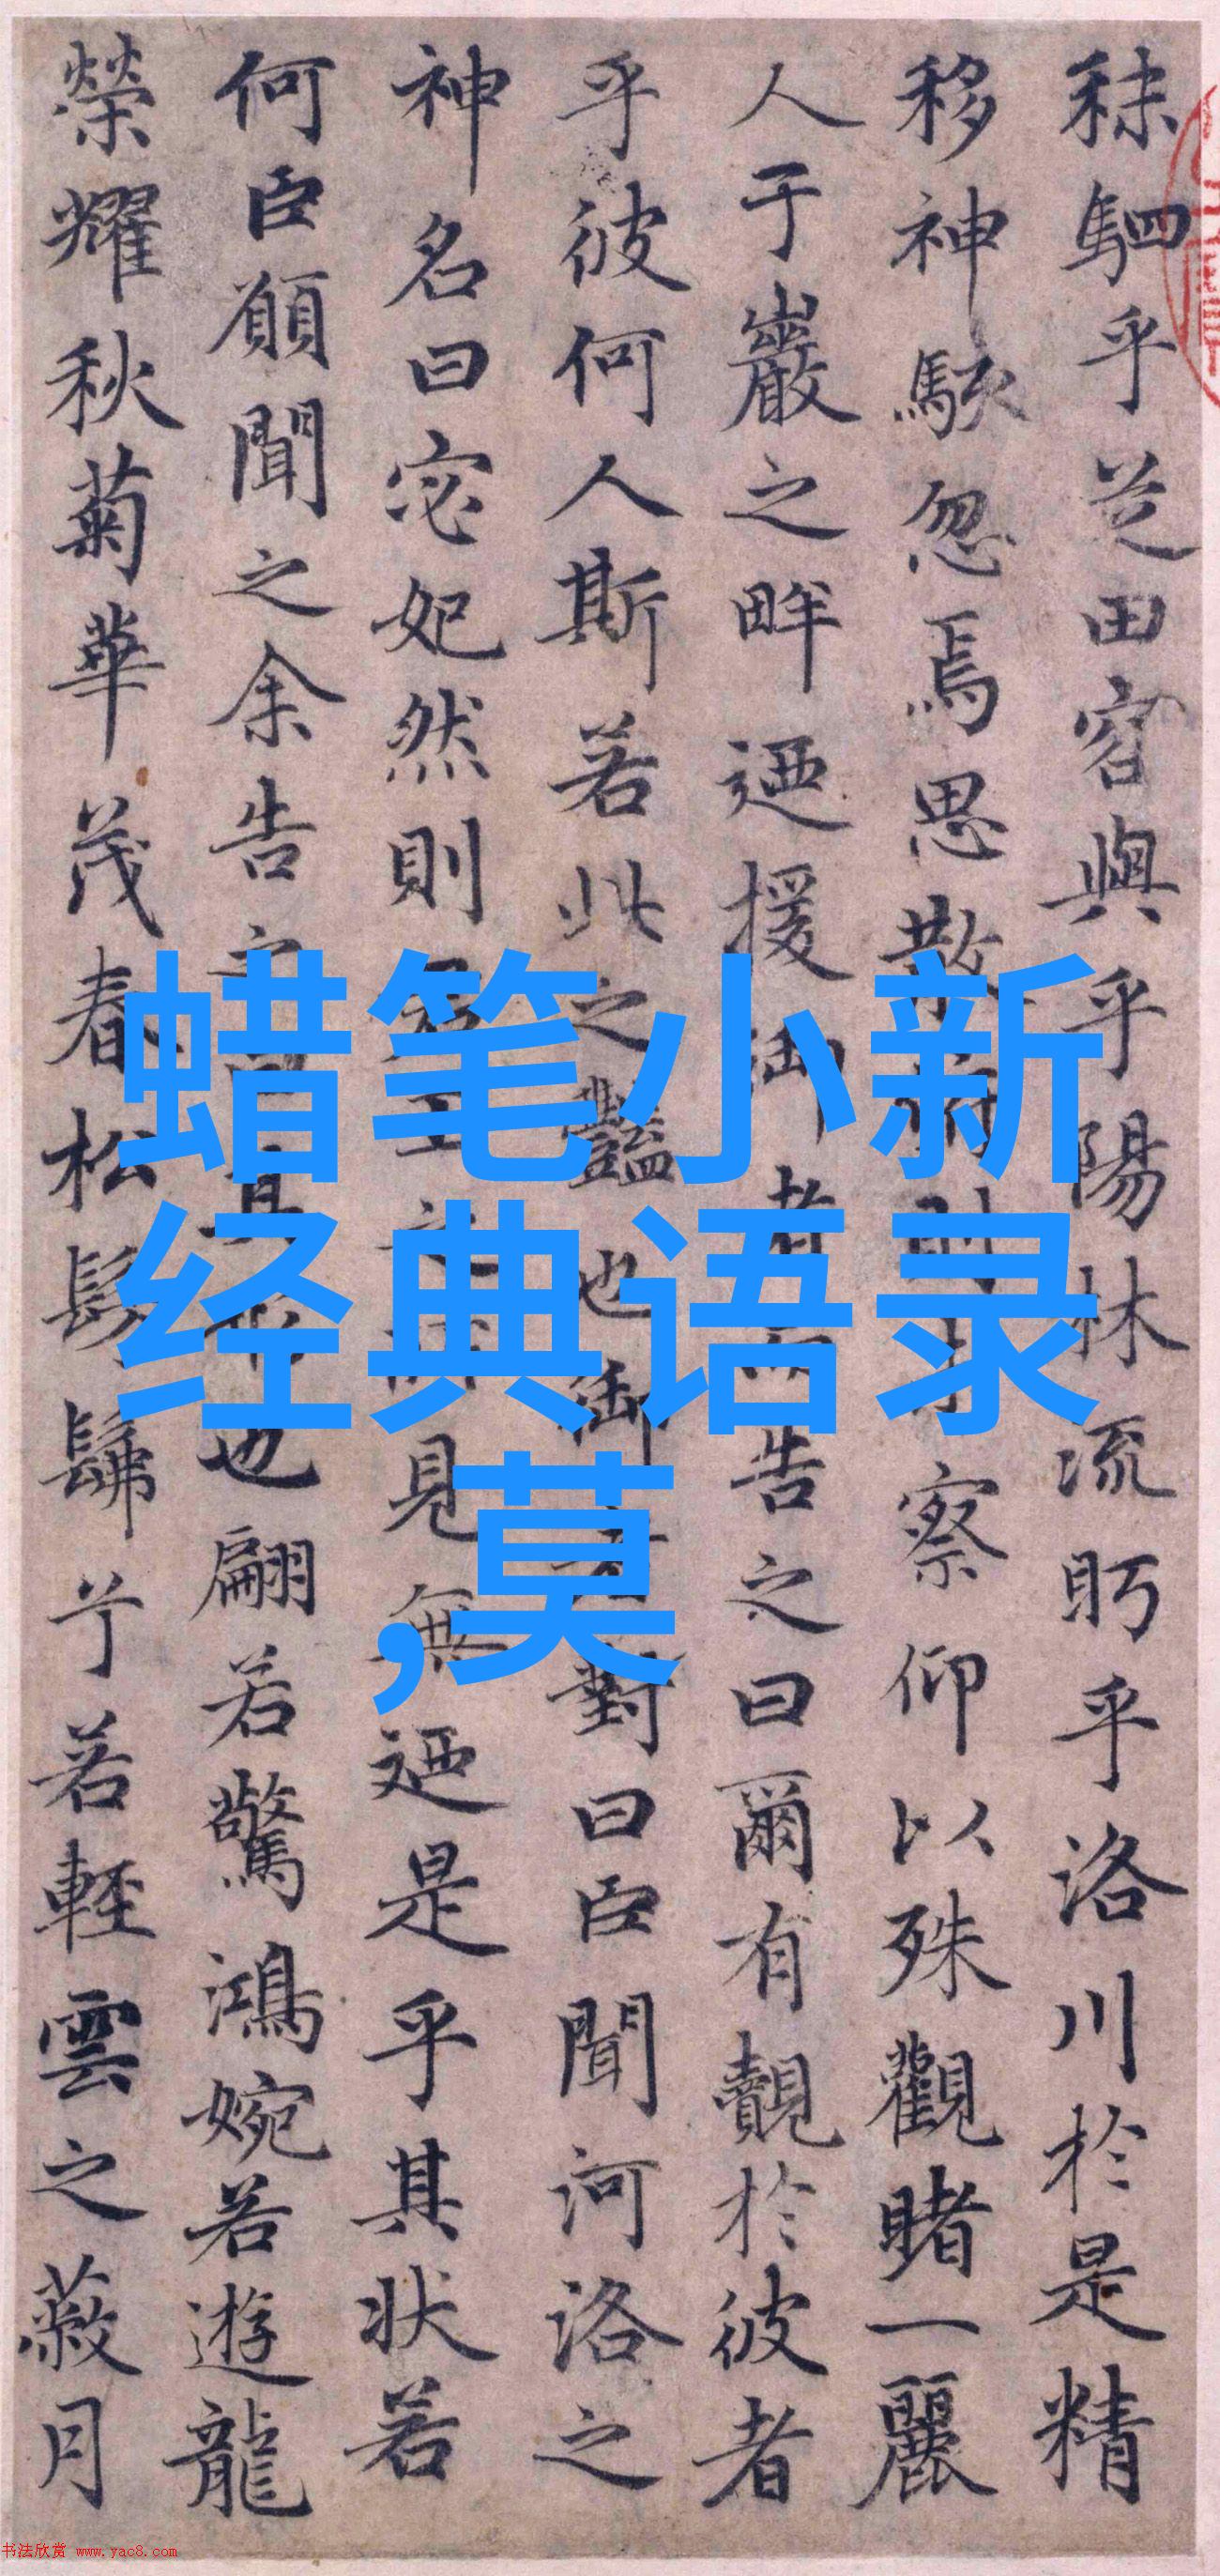 秣駟乎芝田容與乎陽林流眄乎洛川於是精
移神駭忽焉思散俯則未察仰以殊觀睹一麗
人于巖之畔迺援御者而告之曰爾有覿於彼者
乎彼何人斯若此之豔也御者對曰臣聞河洛之
神名曰宓妃然則君王之所見無迺是乎其狀若
何臣願聞之余告之曰其形也翩若驚鴻婉若遊龍
榮耀秋菊華茂春松髣髴兮若輕雲之蔽月
蜡笔小新
经典语录
,莫
书法欣赏 www.yac8.com